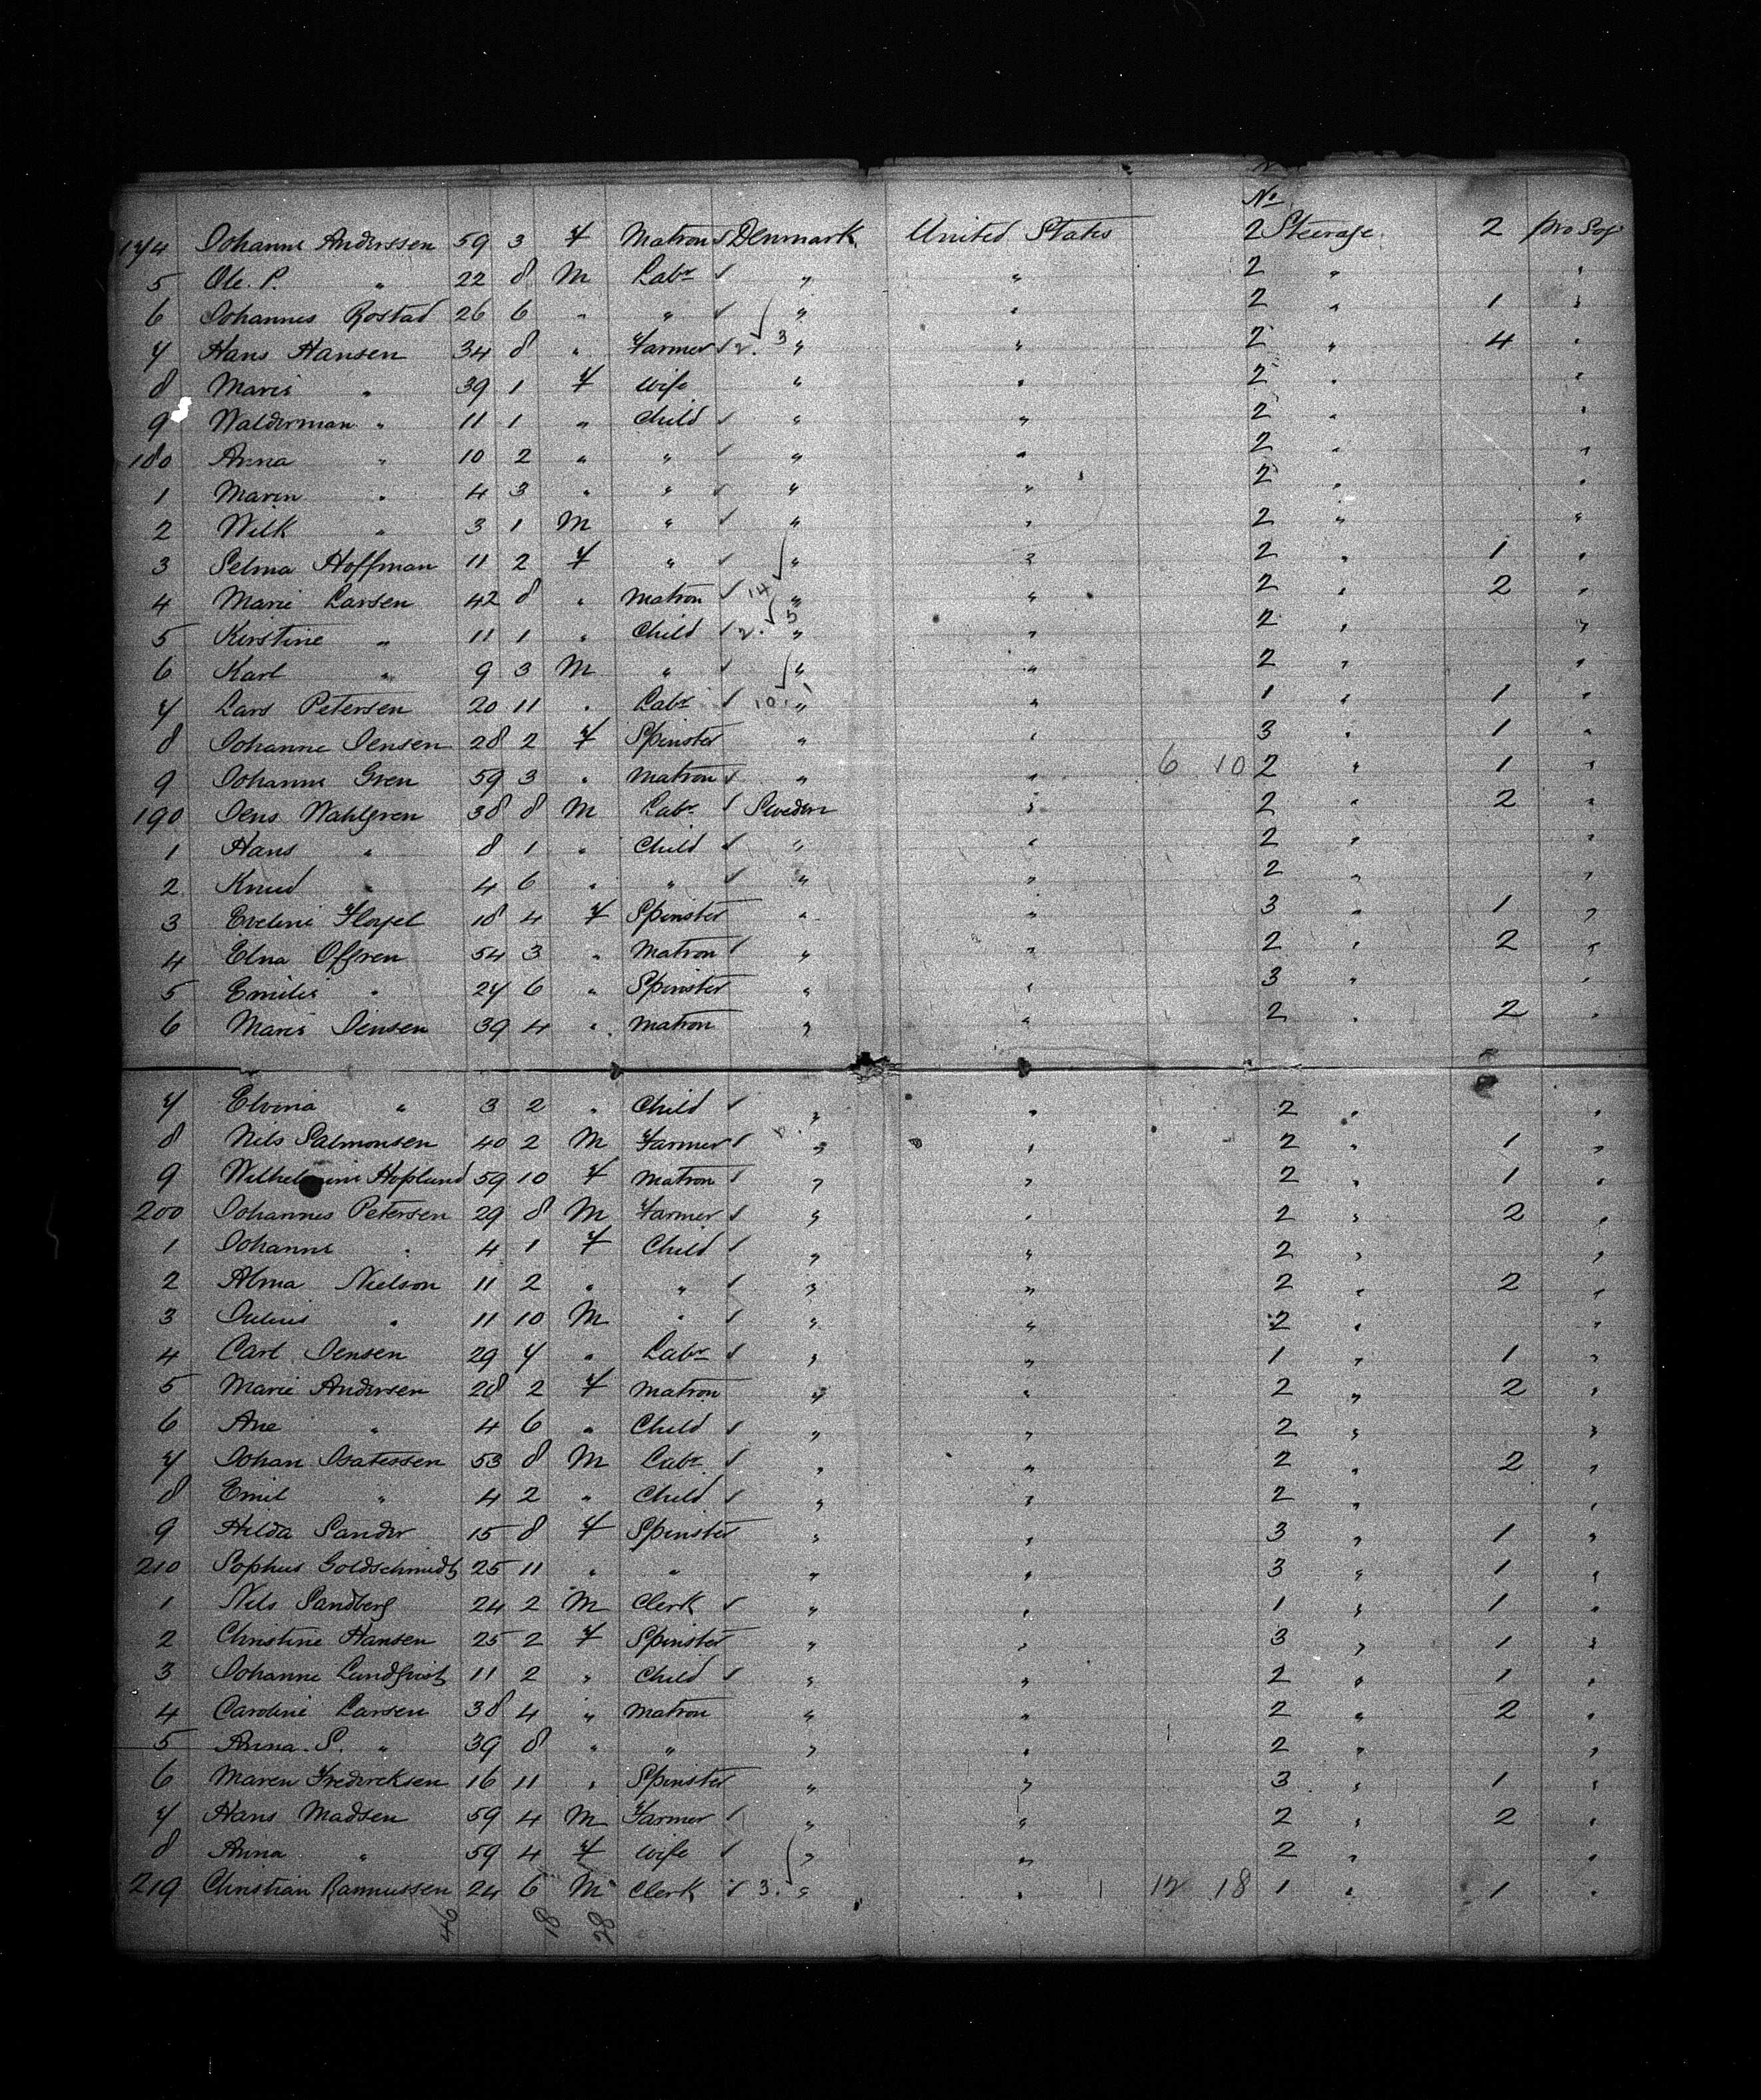 No
174 Johanne Anderssen 59 3 F Matron ✓ Denmark United States 2 Steerage 2 pro Soj
5 Ole. P. " 22 8 M Labr ✓ " " 2 " "
6 Johannes Rostad 26 6 " " ✓ " " 2 " 1 "
7 Hans Hansen 34 8 " Farmer ✓ 2. 3 " " 2 " 4 "
8 Marie " 39 1 F Wife " " 2 " "
9 Walderman " 11 1 " Child ✓ " " 2 " "
180 Anna " 10 2 " " ✓ " " 2 " "
1 Maren " 4 3 " " ✓ " " 2 " "
2 Wilk " 3 1 M " ✓ " " 2 " "
3 Selma Hoffman 11 2 F " ✓ " " 2 " 1 "
4 Marie Larsen 42 8 " Matron ✓ 14 " " 2 " 2 "
5 Kirstine " 11 1 " Child ✓ 2. 5 " " 2 " "
6 Karl " 9 3 M " ✓ " " 2 " "
7 Lars Petersen 20 11 " Labr ✓ 10. " " 1 " 1 "
8 Johanne Jensen 28 2 F Spinster " " 3 " 1 "
9 Johanne Gren 59 3 " Matron ✓ " " 6 10 2 " 1 "
190 Jens Wahlgren 38 8 M Labr ✓ Sweden " 2 " 2 "
1 Hans " 8 1 " Child ✓ " " 2 " "
2 Knud " 4 6 " " ✓ " " 2 " "
3 Eveline 18 4 F Spinster " " 3 " 1 "
4 Elna Offren 54 3 " Matron ✓ " " 2 " 2 "
5 Emilie " 27 6 " Spinster " " 3 " "
6 Marie Jensen 39 4 " Matron " " 2 " 2 "
7 Elvina " 3 2 " Child ✓ " " 2 " "
8 Nils Salmonsen 40 2 M Farmer ✓ " " 2 " 1 "
9 Wilhelmine Hoplund 59 10 F Matron ✓ " " 2 " 1 "
200 Johannes Petersen 29 8 M Farmer ✓ " " 2 " 2 "
1 Johanne " 4 1 F Child ✓ " " 2 " "
2 Alma Nielson 11 2 " " ✓ " " 2 " 2 "
3 Julius " 11 10 M " ✓ " " 2 " "
4 Carl Jensen 29 7 " Labr ✓ " " 1 " 1 "
5 Marie Andersen 28 2 F Matron " " 2 " 2 "
6 Ane " 4 6 " Child ✓ " " 2 " "
7 Johan 53 8 M Labr ✓ " " 2 " 2 "
8 Emil " 4 2 " Child ✓ " " 2 " "
9 Hilda Sander 15 8 F Spinster " " 3 " 1 "
210 Sophus Goldschmidt 25 11 " " " " 3 " 1 "
1 Nils Sandberg 24 2 M Clerk ✓ " " 1 " 1 "
2 Christine Hansen 25 2 F Spinster " " 3 " 1 "
3 Johanne Lundqvist 11 2 " Child ✓ " " 2 " 1 "
4 Caroline Larsen 38 4 " Matron " " 2 " 2 "
5 Anna. S. " 39 8 " " " " 2 " "
6 Maren Fredereksen 16 11 " Spinster " " 3 " 1 "
7 Hans Madsen 59 4 M Farmer ✓ " " 2 " 2 "
8 Anna " 59 4 F Wife ✓ " " 2 " "
219 Christian Rasmussen 24 6 M Clerk ✓ 3. " " 12 18 1 " 1 "
46 18 28